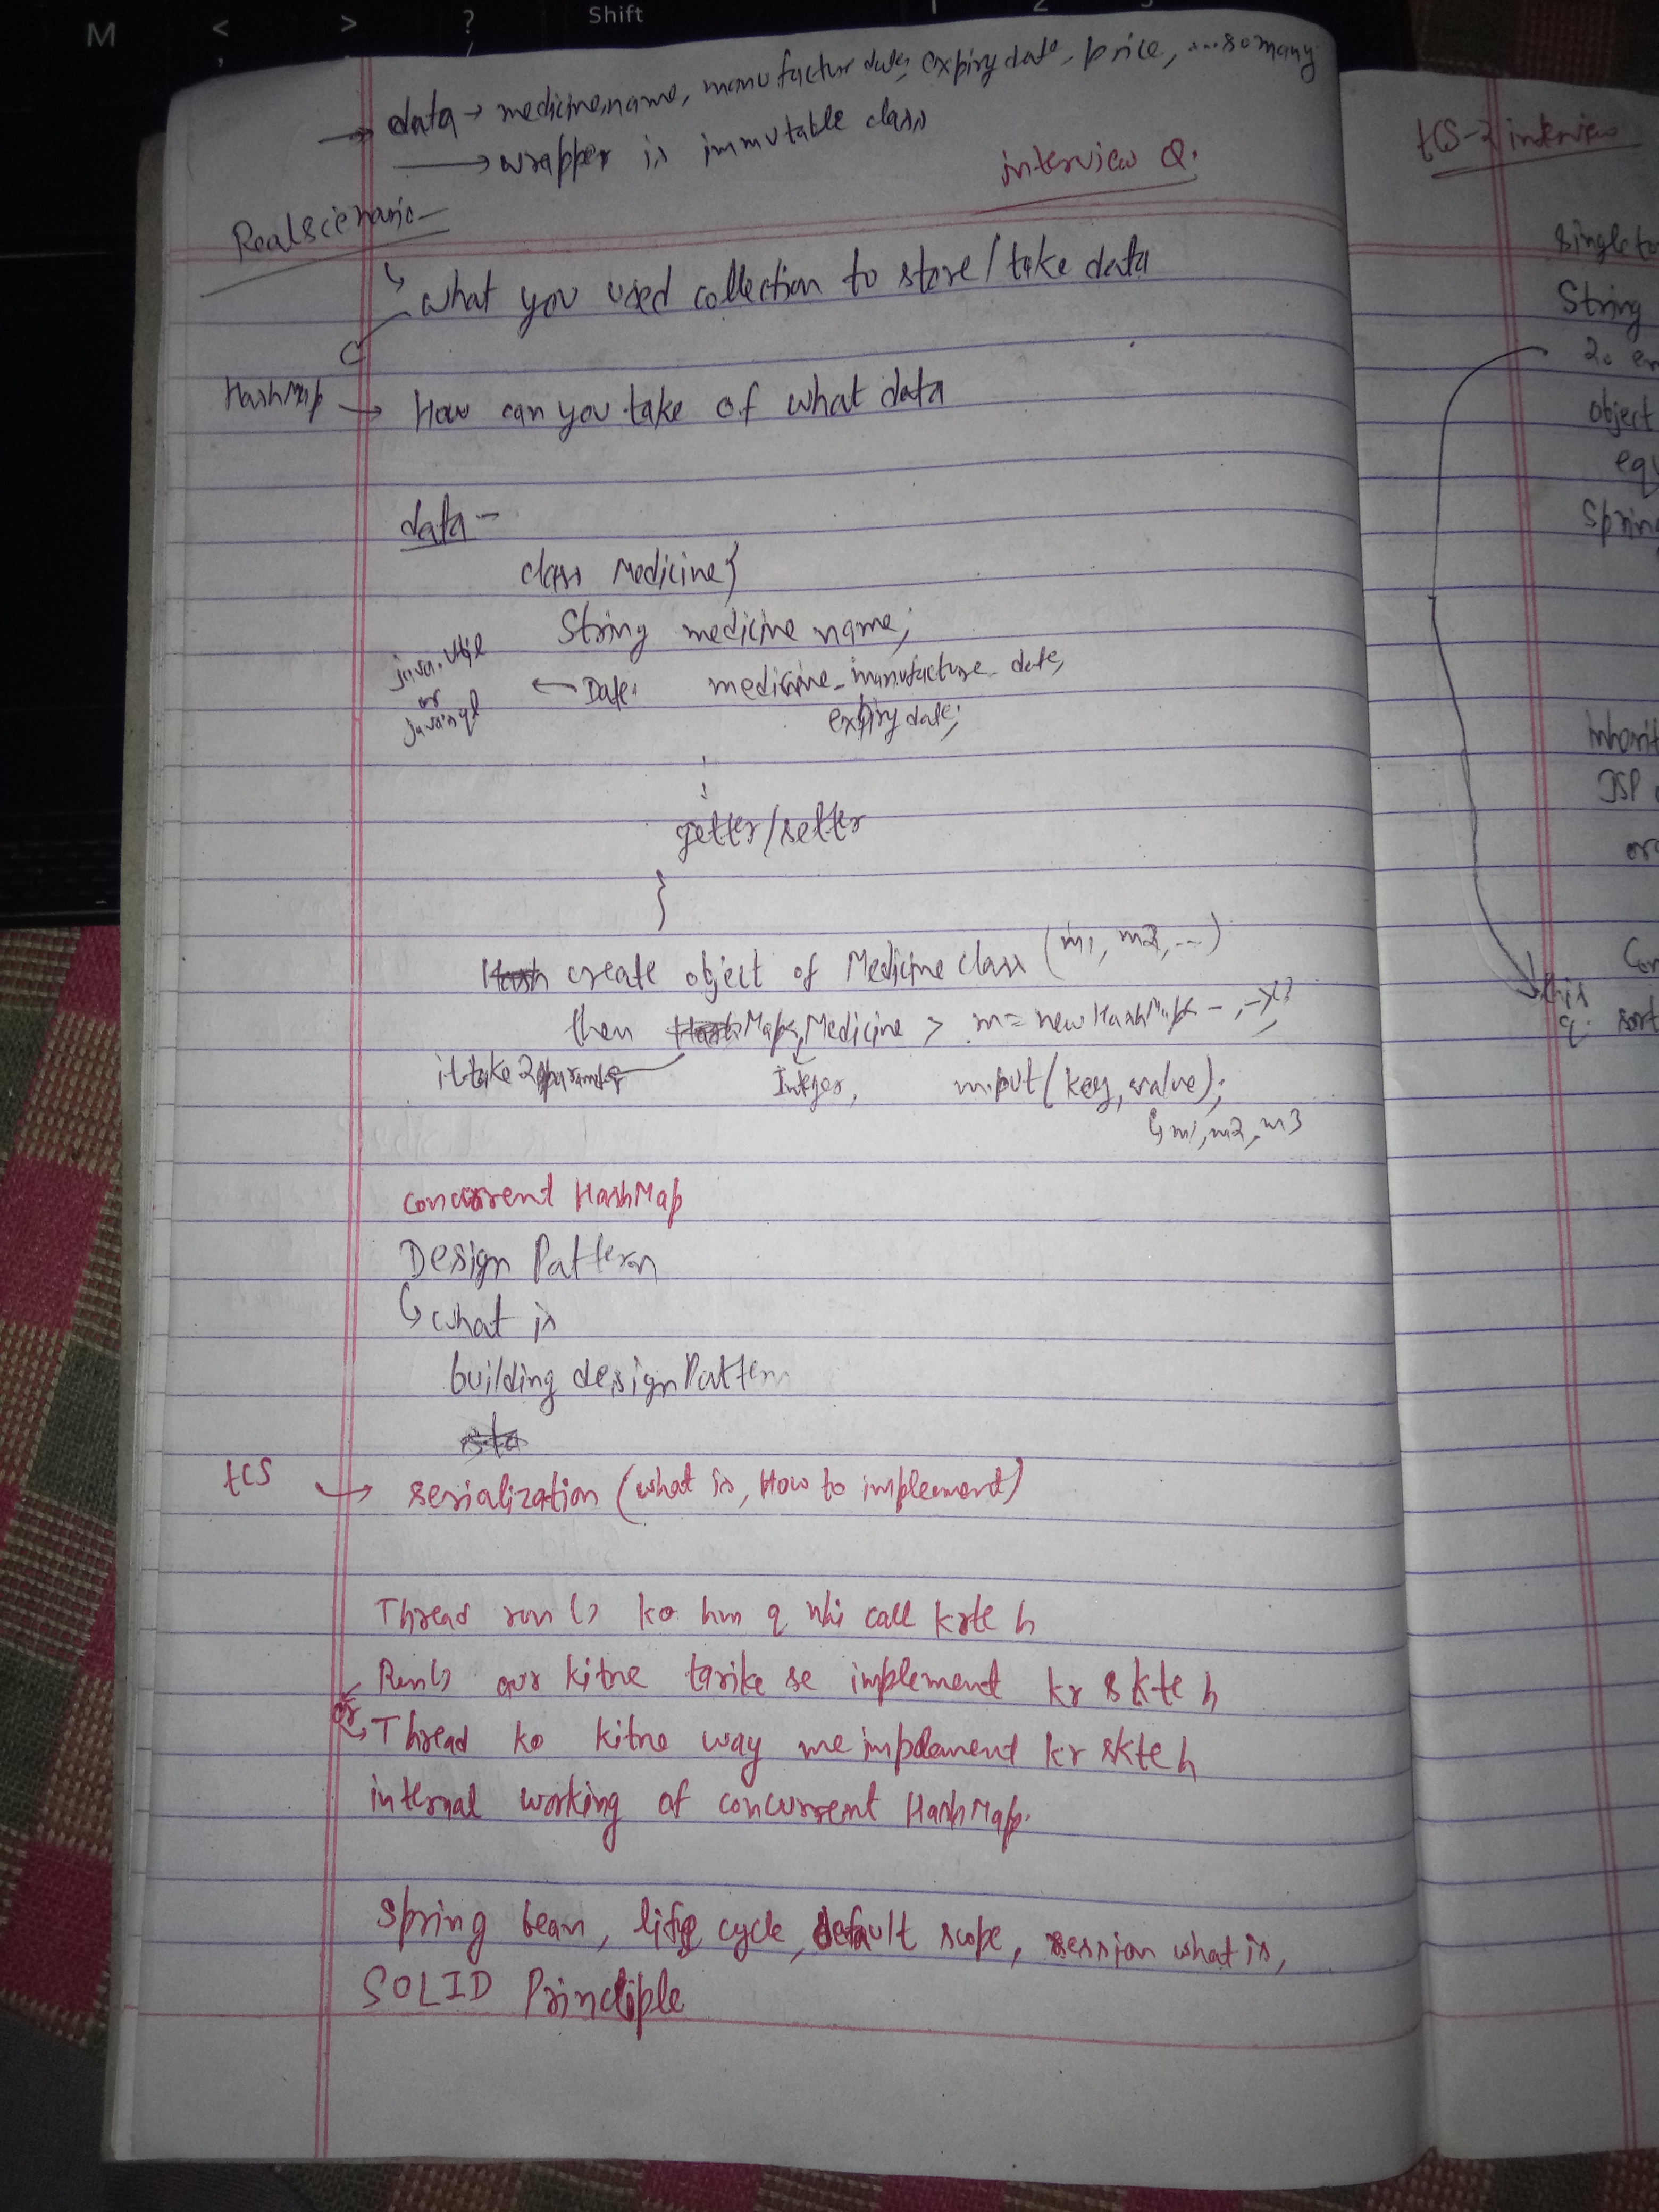 M < > ? Shift
→ data → medicine name, manufactur date, expiry date, price, ...so many
→ wrapper is immutable class
interview Q.
Realscienario-
what you used collection to store/take data
HashMap → How can you take of what data
data -
class Medicine{
String medicine name;
java.util or
← Date: medicine_manufacture_date,
expiry date;
getter/setter
}
create object of Medicine class (m1, m2, ...)
then Map<,Medicine> m = new HashMap<-,->();
it take 2 parameter
Integer, m.put(key, value);
↳ m1, m2, m3
concurrent HashMap
Design Pattern
↳ what is
building design Pattern
tCS → serialization (what is, How to implement)
Thread run() ko hm q nhi call krte h
Run() aur kitne tarike se implement kr skte h
or
Thread ko kitne way me implement kr skte h
internal working of concurrent HashMap.
Spring bean, life cycle, default scope, session what is,
SOLID Principle
tCS-2 interview
String
2.
object
JSP
this
q.